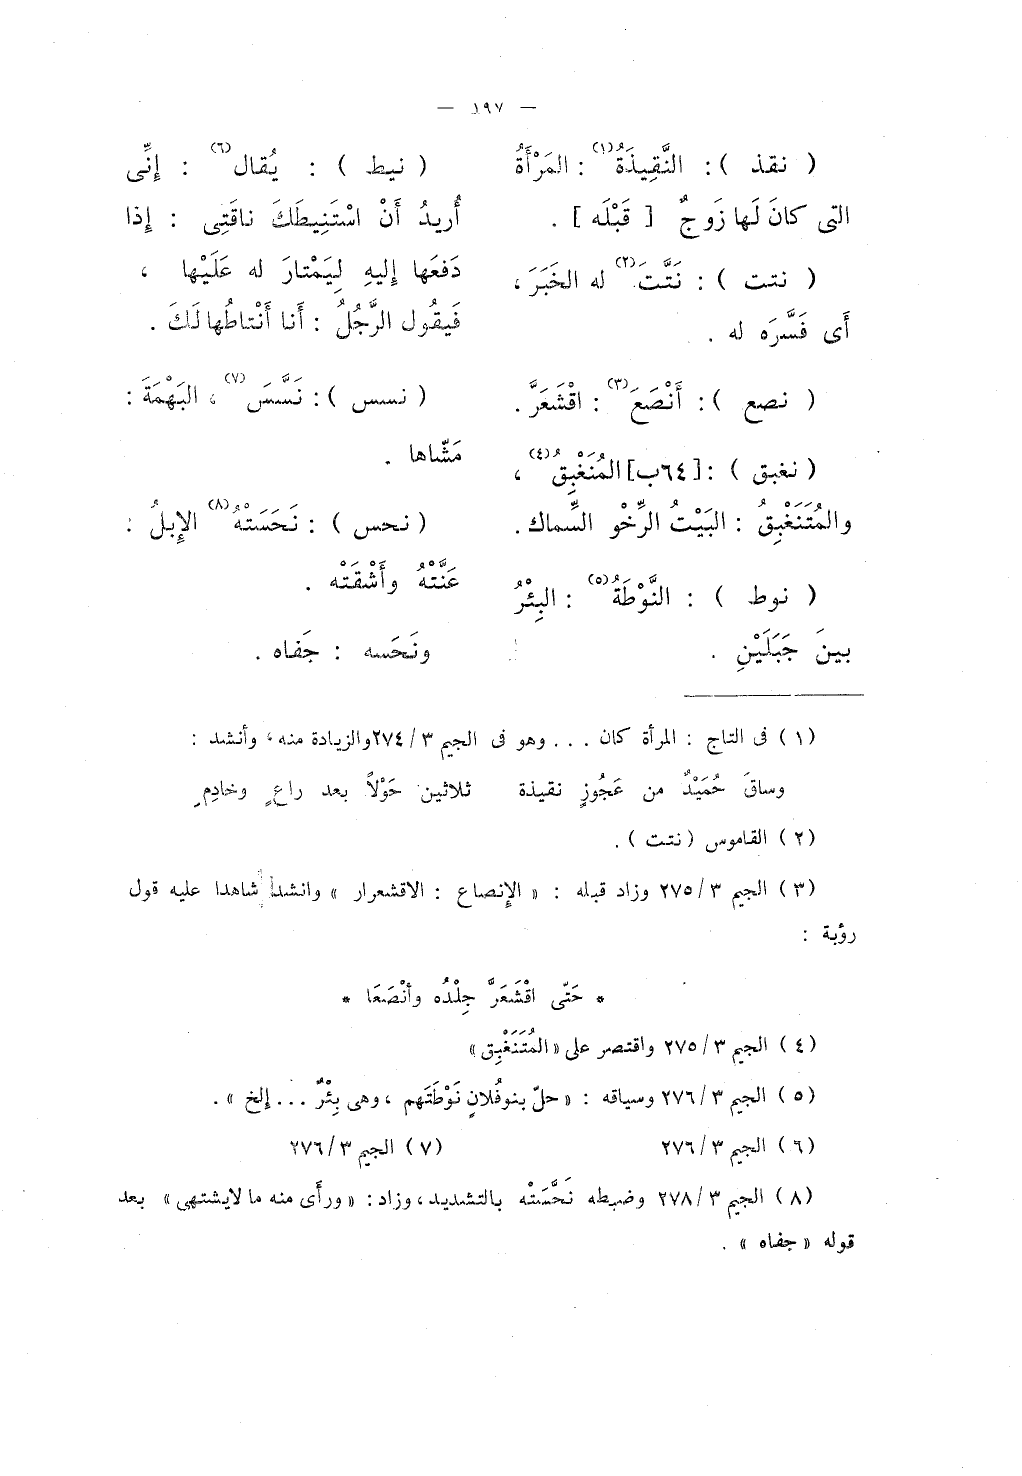 — ١٩٧ —
( نقذ ) : النَّقِيذَةُ(١) : المَرْأَةُ
التى كانَ لَها زَوجٌ [ قَبْلَه ] .
( نتت ) : نَتَّتَ(٢) له الخَبَرَ ،
أَى فَسَّرَه له .
( نصع ) : أَنْصَعَ(٣) : اقْشَعَرَّ .
( نغبق ) : [٦٤ب] المُنَغْبِقُ(٤) ،
والمُتَنَغْبِقُ : البَيْتُ الرِّخْو السِّماك .
( نوط ) : النَّوْطَةُ(٥) : البِئْرُ
بينَ جَبَلَيْنِ .
( نيط ) : يُقال(٦) : إنِّى
أُريدُ أَنْ اسْتَنِيطَكَ ناقَتِى : إذا
دَفعَها إليهِ لِيَمْتارَ له عَلَيْها ،
فَيقُول الرَّجُلُ : أَنا أَنْتاطُها لَكَ .
( نسس ) : نَسَّسَ(٧) ، البَهْمَةَ :
مَشّاها .
( نحس ) : نَحَسَتْهُ(٨) الإِبلُ :
عَنَّتْهُ وأَشْقَتْه .
ونَحَسه : جَفاه .
(١) فى التاج : المرأة كان ... وهو فى الجيم ٢٧٤/٣ والزيادة منه ، وأنشد :
وساقَ حُمَيْدٌ من عَجُوزٍ نقيذة ثلاثين حَوْلاً بعد راعٍ وخادِمِ
(٢) القاموس (نتت ) .
(٣) الجيم ٢٧٥/٣ وزاد قبله : « الإنصاع : الاقشعرار » وانشد شاهدا عليه قول
رؤبة :
* حَتّى اقْشَعَرَّ جِلْدُه وأنْصَعَا *
(٤) الجيم ٢٧٥/٣ واقتصر على « المُتَنَغْبِق »
(٥) الجيم ٢٧٦/٣ وسياقه : « حلّ بنوفُلانٍ نَوْطَتَهم ، وهى بِئْرٌ ... إلخ » .
(٦) الجيم ٢٧٦/٣ (٧) الجيم ٢٧٦/٣
(٨) الجيم ٢٧٨/٣ وضبطه نَحَّسَتْه بالتشديد ، وزاد : « ورأى منه ما لايشتهى » بعد
قوله « جفاه » .